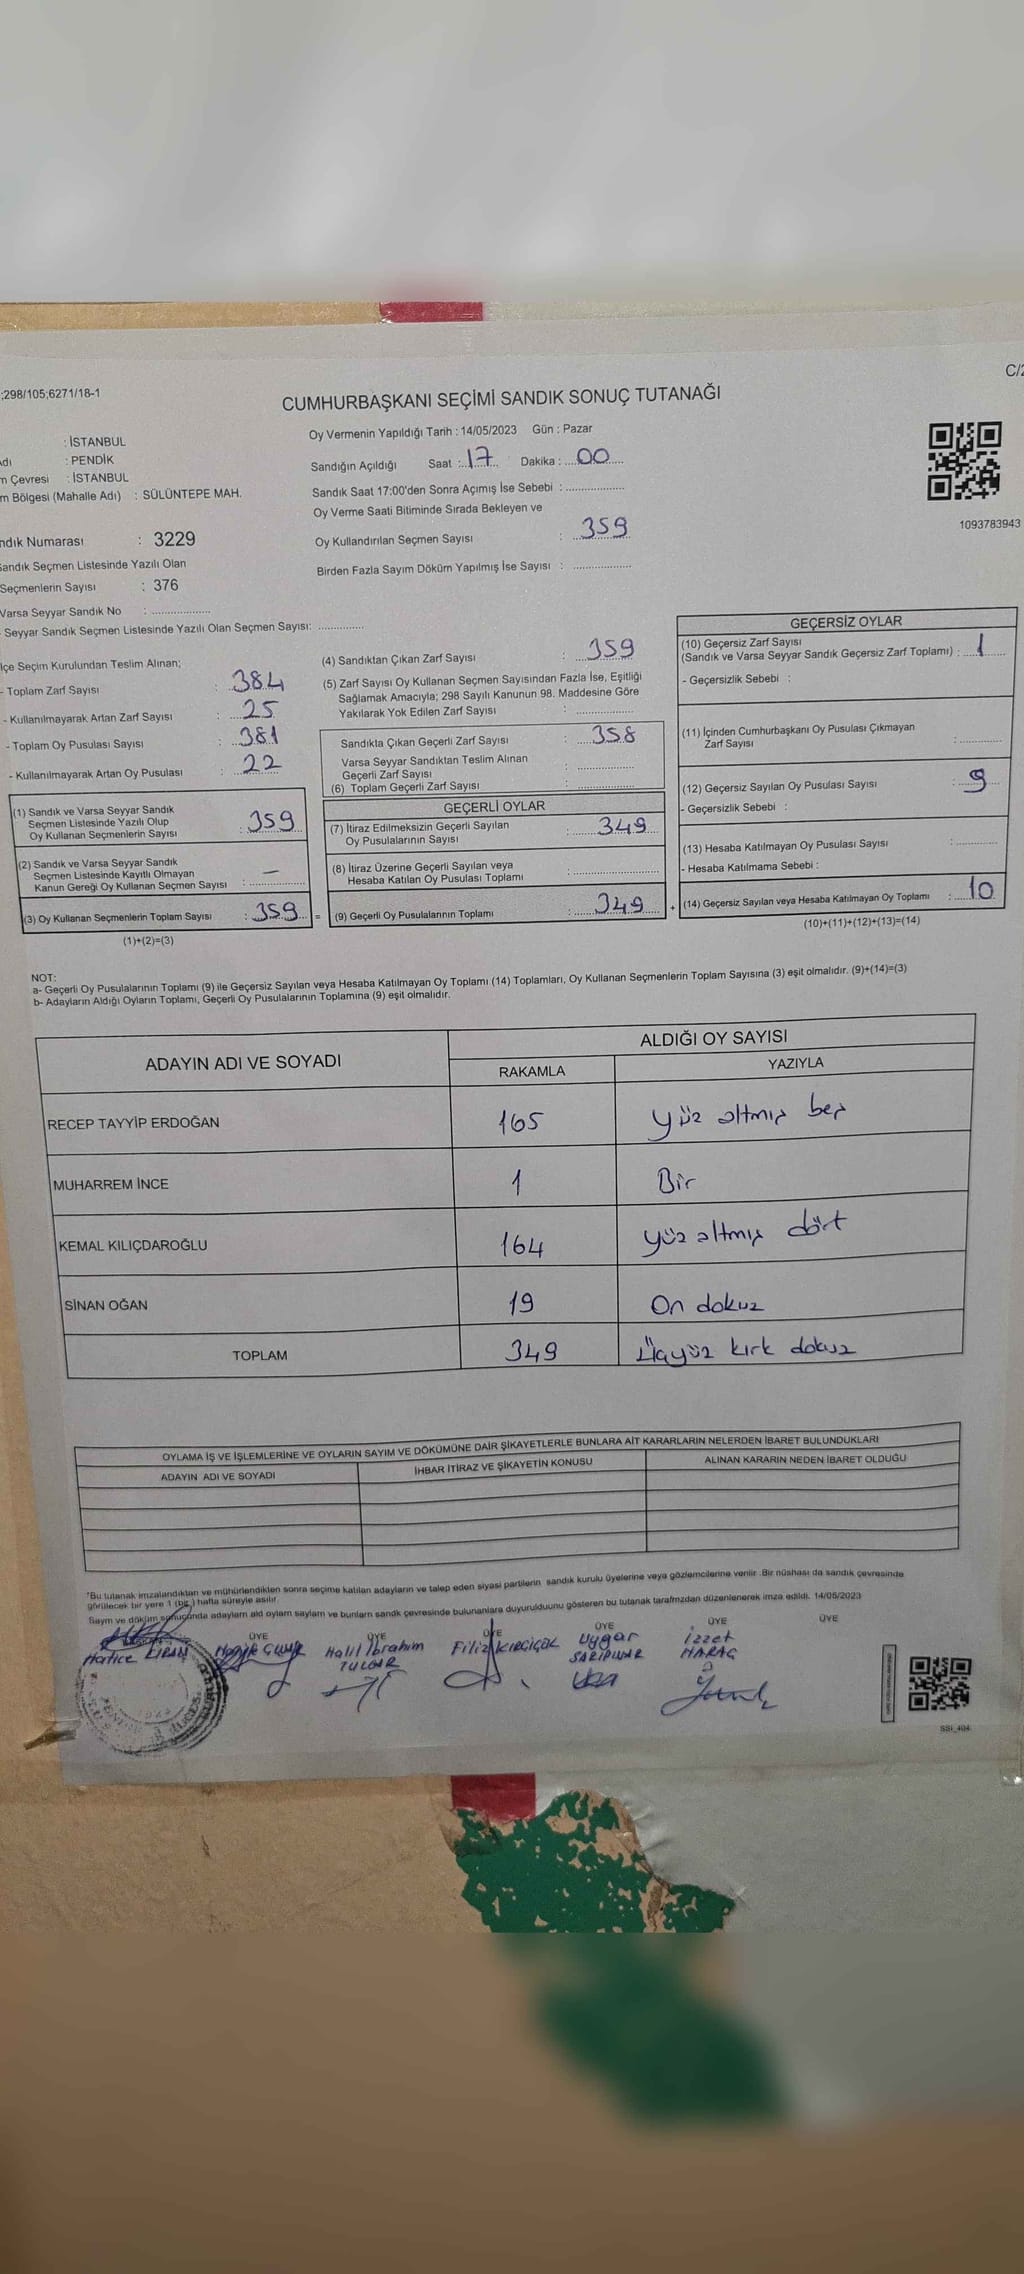 ;298/105;6271/18-1
C/2
CUMHURBAŞKANI SEÇİMİ SANDIK SONUÇ TUTANAĞI
: İSTANBUL
: PENDİK
: İSTANBUL
Bölgesi (Mahalle Adı) : SÜLÜNTEPE MAH.
Oy Vermenin Yapıldığı Tarih : 14/05/2023 Gün : Pazar
Sandığın Açıldığı Saat : 17 Dakika : 00
Sandık Saat 17:00'den Sonra Açımış İse Sebebi :
Oy Verme Saati Bitiminde Sırada Bekleyen ve
Oy Kullandırılan Seçmen Sayısı : 359
Birden Fazla Sayım Döküm Yapılmış İse Sayısı :
1093783943
ndık Numarası : 3229
Sandık Seçmen Listesinde Yazılı Olan
Seçmenlerin Sayısı : 376
Varsa Seyyar Sandık No :
Seyyar Sandık Seçmen Listesinde Yazılı Olan Seçmen Sayısı:
lçe Seçim Kurulundan Teslim Alınan;
- Toplam Zarf Sayısı : 384
- Kullanılmayarak Artan Zarf Sayısı : 25
- Toplam Oy Pusulası Sayısı : 381
- Kullanılmayarak Artan Oy Pusulası : 22
(1) Sandık ve Varsa Seyyar Sandık
Seçmen Listesinde Yazılı Olup
Oy Kullanan Seçmenlerin Sayısı : 359
(2) Sandık ve Varsa Seyyar Sandık
Seçmen Listesinde Kayıtlı Olmayan
Kanun Gereği Oy Kullanan Seçmen Sayısı : —
(3) Oy Kullanan Seçmenlerin Toplam Sayısı : 359 =
(1)+(2)=(3)
(4) Sandıktan Çıkan Zarf Sayısı : 359
(5) Zarf Sayısı Oy Kullanan Seçmen Sayısından Fazla İse, Eşitliği
Sağlamak Amacıyla; 298 Sayılı Kanunun 98. Maddesine Göre
Yakılarak Yok Edilen Zarf Sayısı :
Sandıkta Çıkan Geçerli Zarf Sayısı : 358
Varsa Seyyar Sandıktan Teslim Alınan
Geçerli Zarf Sayısı :
(6) Toplam Geçerli Zarf Sayısı :
GEÇERLİ OYLAR
(7) İtiraz Edilmeksizin Geçerli Sayılan
Oy Pusulalarının Sayısı : 349
(8) İtiraz Üzerine Geçerli Sayılan veya
Hesaba Katılan Oy Pusulası Toplamı :
(9) Geçerli Oy Pusulalarının Toplamı : 349 +
GEÇERSİZ OYLAR
(10) Geçersiz Zarf Sayısı
(Sandık ve Varsa Seyyar Sandık Geçersiz Zarf Toplamı) : 1
- Geçersizlik Sebebi :
(11) İçinden Cumhurbaşkanı Oy Pusulası Çıkmayan
Zarf Sayısı :
(12) Geçersiz Sayılan Oy Pusulası Sayısı : 9
- Geçersizlik Sebebi :
(13) Hesaba Katılmayan Oy Pusulası Sayısı :
- Hesaba Katılmama Sebebi :
(14) Geçersiz Sayılan veya Hesaba Katılmayan Oy Toplamı : 10
(10)+(11)+(12)+(13)=(14)
NOT:
a- Geçerli Oy Pusulalarının Toplamı (9) ile Geçersiz Sayılan veya Hesaba Katılmayan Oy Toplamı (14) Toplamları, Oy Kullanan Seçmenlerin Toplam Sayısına (3) eşit olmalıdır. (9)+(14)=(3)
b- Adayların Aldığı Oyların Toplamı, Geçerli Oy Pusulalarının Toplamına (9) eşit olmalıdır.
ADAYIN ADI VE SOYADI
ALDIĞI OY SAYISI
RAKAMLA YAZIYLA
RECEP TAYYİP ERDOĞAN 165 Yüz altmış beş
MUHARREM İNCE 1 Bir
KEMAL KILIÇDAROĞLU 164 Yüz altmış dört
SİNAN OĞAN 19 On dokuz
TOPLAM 349 Üçyüz kırk dokuz
OYLAMA İŞ VE İŞLEMLERİNE VE OYLARIN SAYIM VE DÖKÜMÜNE DAİR ŞİKAYETLERLE BUNLARA AİT KARARLARIN NELERDEN İBARET BULUNDUKLARI
ADAYIN ADI VE SOYADI İHBAR İTİRAZ VE ŞİKAYETİN KONUSU ALINAN KARARIN NEDEN İBARET OLDUĞU
"Bu tutanak imzalandıktan ve mühürlendikten sonra seçime katılan adayların ve talep eden siyasi partilerin sandık kurulu üyelerine veya gözlemcilerine verilir. Bir nüshası da sandık çevresinde
görülecek bir yere 1 (bir) hafta süreyle asılır.
Sayım ve döküm sonucunda adayların ald oyların sayların ve bunların sandk çevresinde bulunanlara duyurulduunu gösteren bu tutanak tarafmzdan düzenlenerek imza edildi. 14/05/2023
ÜYE ÜYE ÜYE ÜYE ÜYE ÜYE
Hatice
Halil İbrahim
Filiz KIRÇİÇEK
Uygar
SARIPINAR
İzzet
SSİ_404